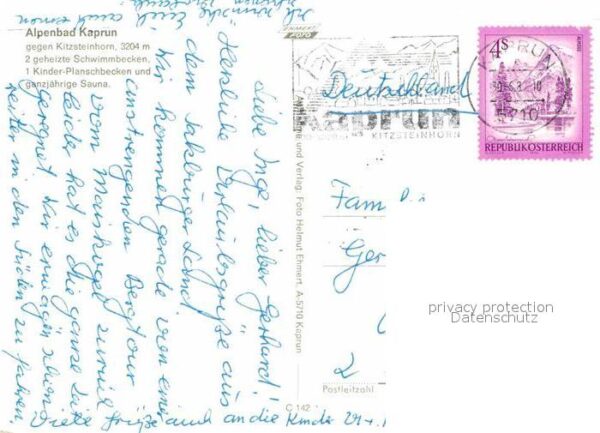 Alpenbad Kaprun
gegen Kitzsteinhorn, 3204 m
2 geheizte Schwimmbecken,
1 Kinder-Planschbecken und
ganzjährige Sauna.
Liebe Inge, lieber Gerhard!
Herzliche Urlaubsgrüße aus
dem Salzburger Land
Wir kommen gerade von einer
anstrengenden Bergtour
vom Maiskogel zurück
leider hat es die ganze Zeit
geregnet. Wir erwägen schon
weiter in den Süden zu fahren.
Viele Grüße auch an die Kinder
Ich wünsche Euch
auch
EHMERT
FOTO
Aufnahme und Verlag: Foto Helmut Ehmert, A-5710 Kaprun
C 142
Deutschland
Kaprun
KITZSTEINHORN
KAPRUN
5710
4S
REPUBLIK ÖSTERREICH
Fam
Ger
2
Postleitzahl
privacy protection
Datenschutz